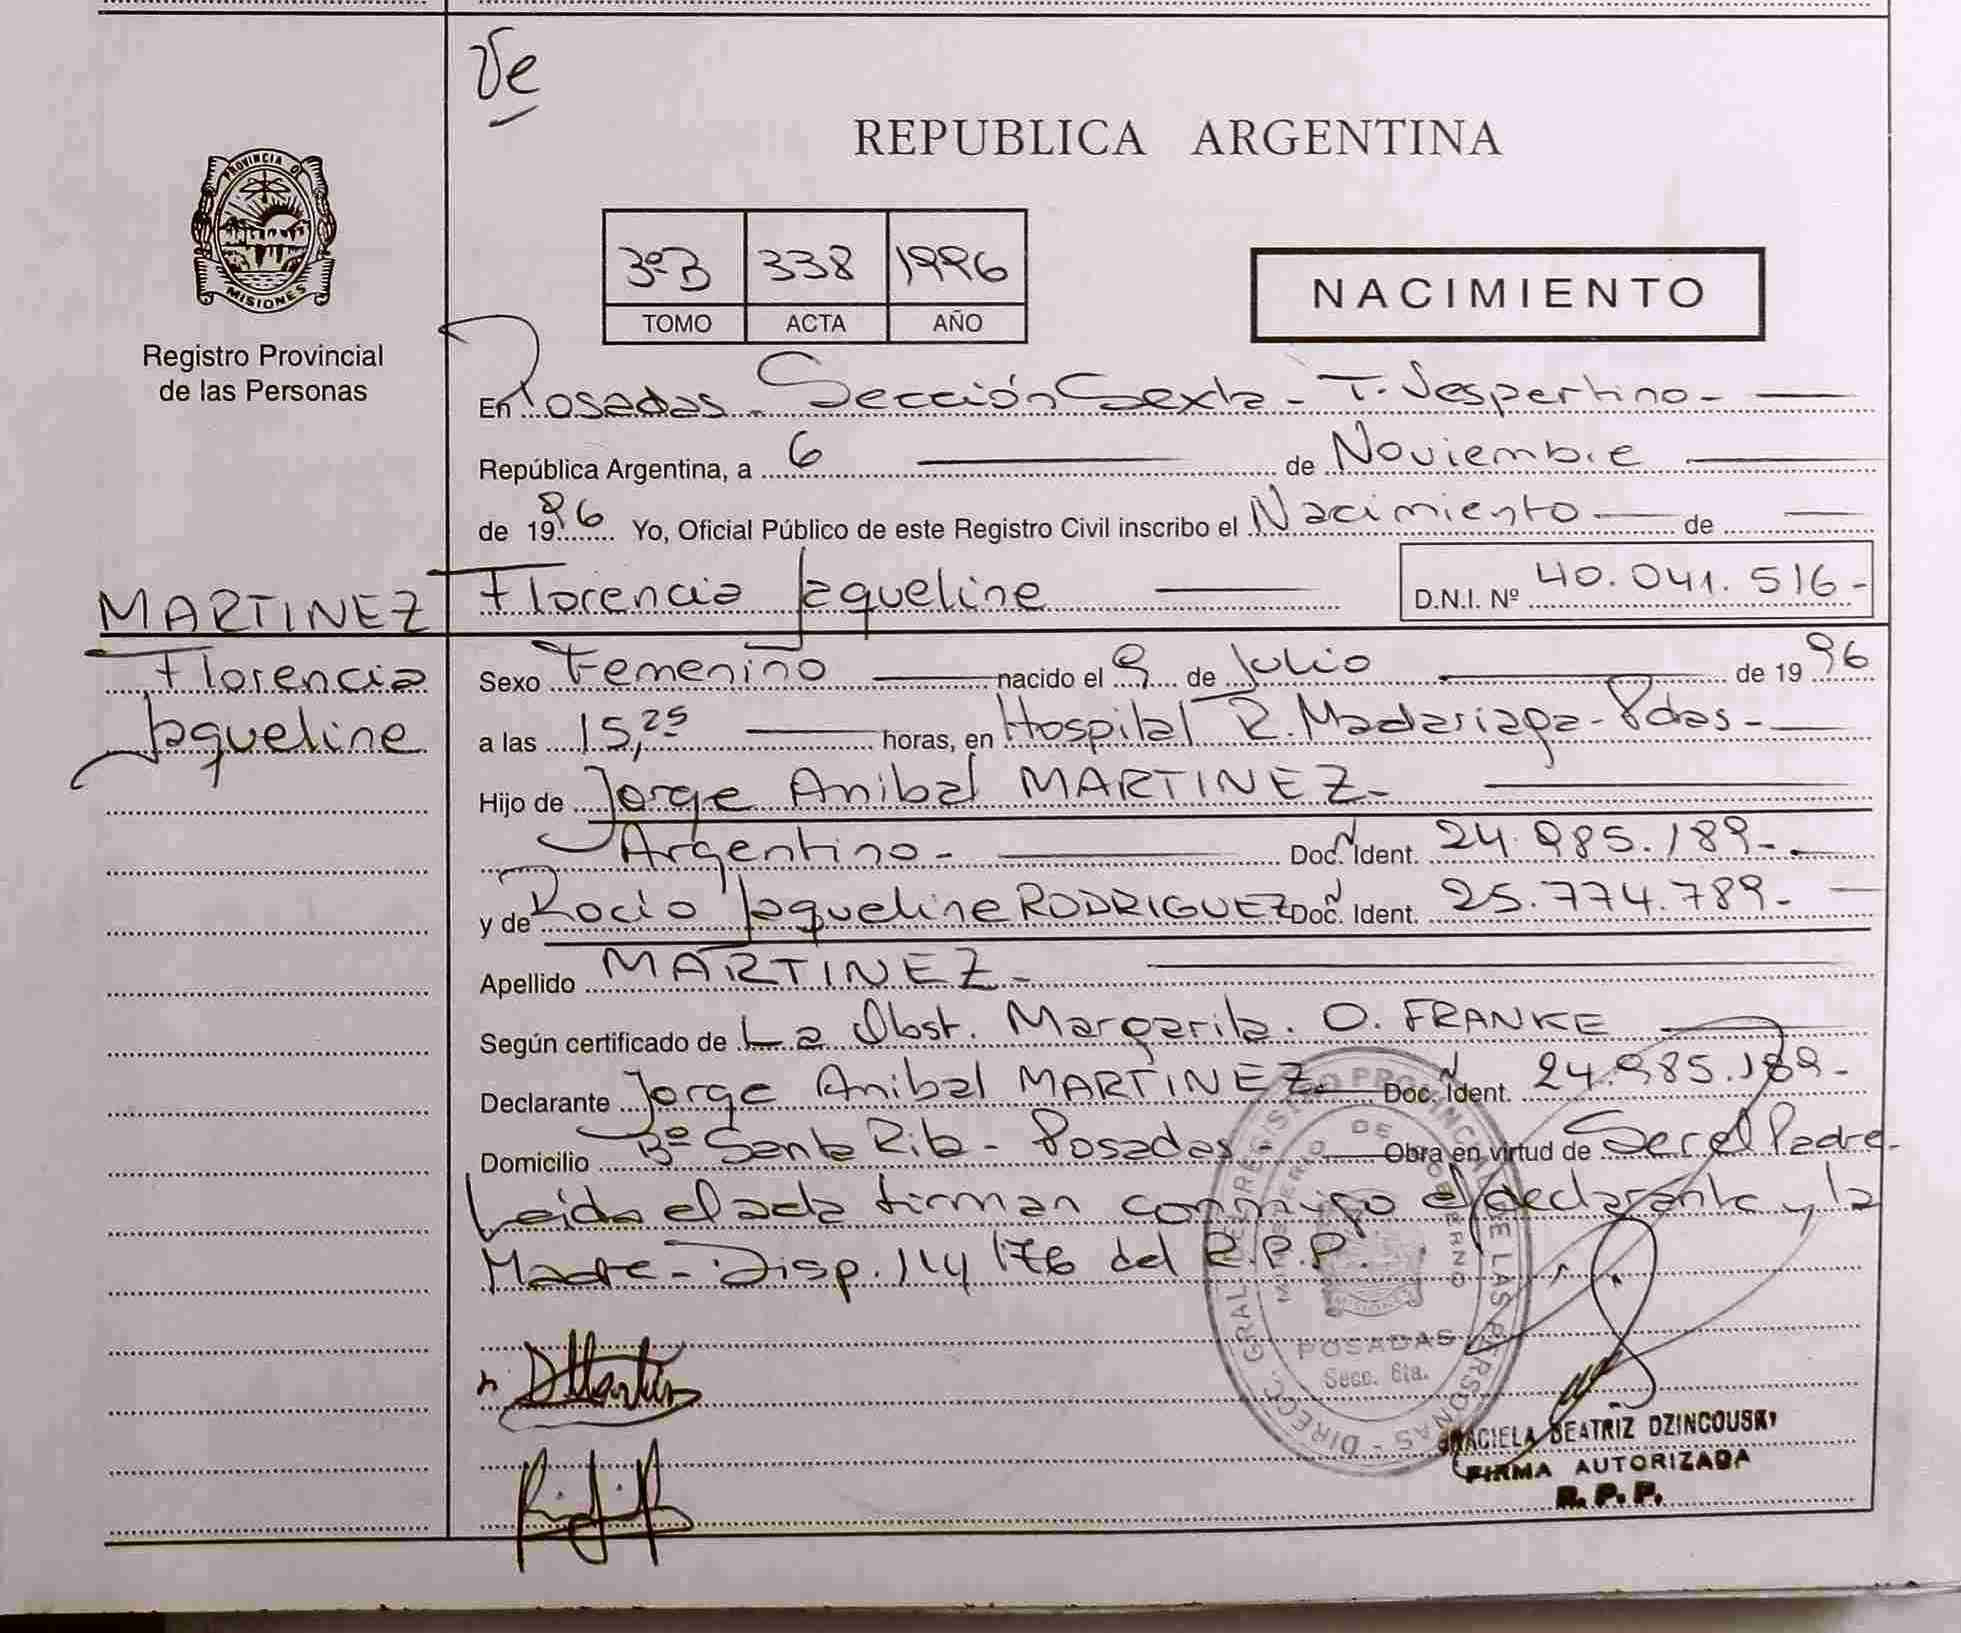 Ve
REPUBLICA ARGENTINA
PROVINCIA DE
MISIONES
Registro Provincial
de las Personas
3º B 338 1996
TOMO ACTA AÑO
NACIMIENTO
En Posadas - Sección Sexta - T. Vespertino -
República Argentina, a 6 de Noviembre
de 1996 Yo, Oficial Público de este Registro Civil inscribo el Nacimiento de
Florencia Jaqueline D.N.I. Nº 40.041.516-
MARTINEZ
Florencia
Jaqueline
Sexo Femenino nacido el 9 de Julio de 1996
a las 15,25 horas, en Hospital R. Madariaga - Pdas -
Hijo de Jorge Anibal MARTINEZ -
Argentino - Doc. Ident. 24.985.189-
y de Rocio Jaqueline RODRIGUEZ Doc. Ident. 25.774.789-
Apellido MARTINEZ -
Según certificado de La Obst. Margarita. O. FRANKE
Declarante Jorge Anibal MARTINEZ Doc. Ident. 24.985.189-
Domicilio Bº Santa Rita - Posadas - Obra en virtud de Ser el Padre -
Leida el acta firman conmigo el declarante y la
Madre - Disp. 114/76 del R.P.P.
DIRECC. GRAL. DE REGISTRO PROVINCIAL DE LAS PERSONAS -
MINISTERIO DE GOBIERNO
MISIONES
POSADAS
Secc. 6ta.
GRACIELA BEATRIZ DZINCOUSKY
FIRMA AUTORIZADA
R. P. P.